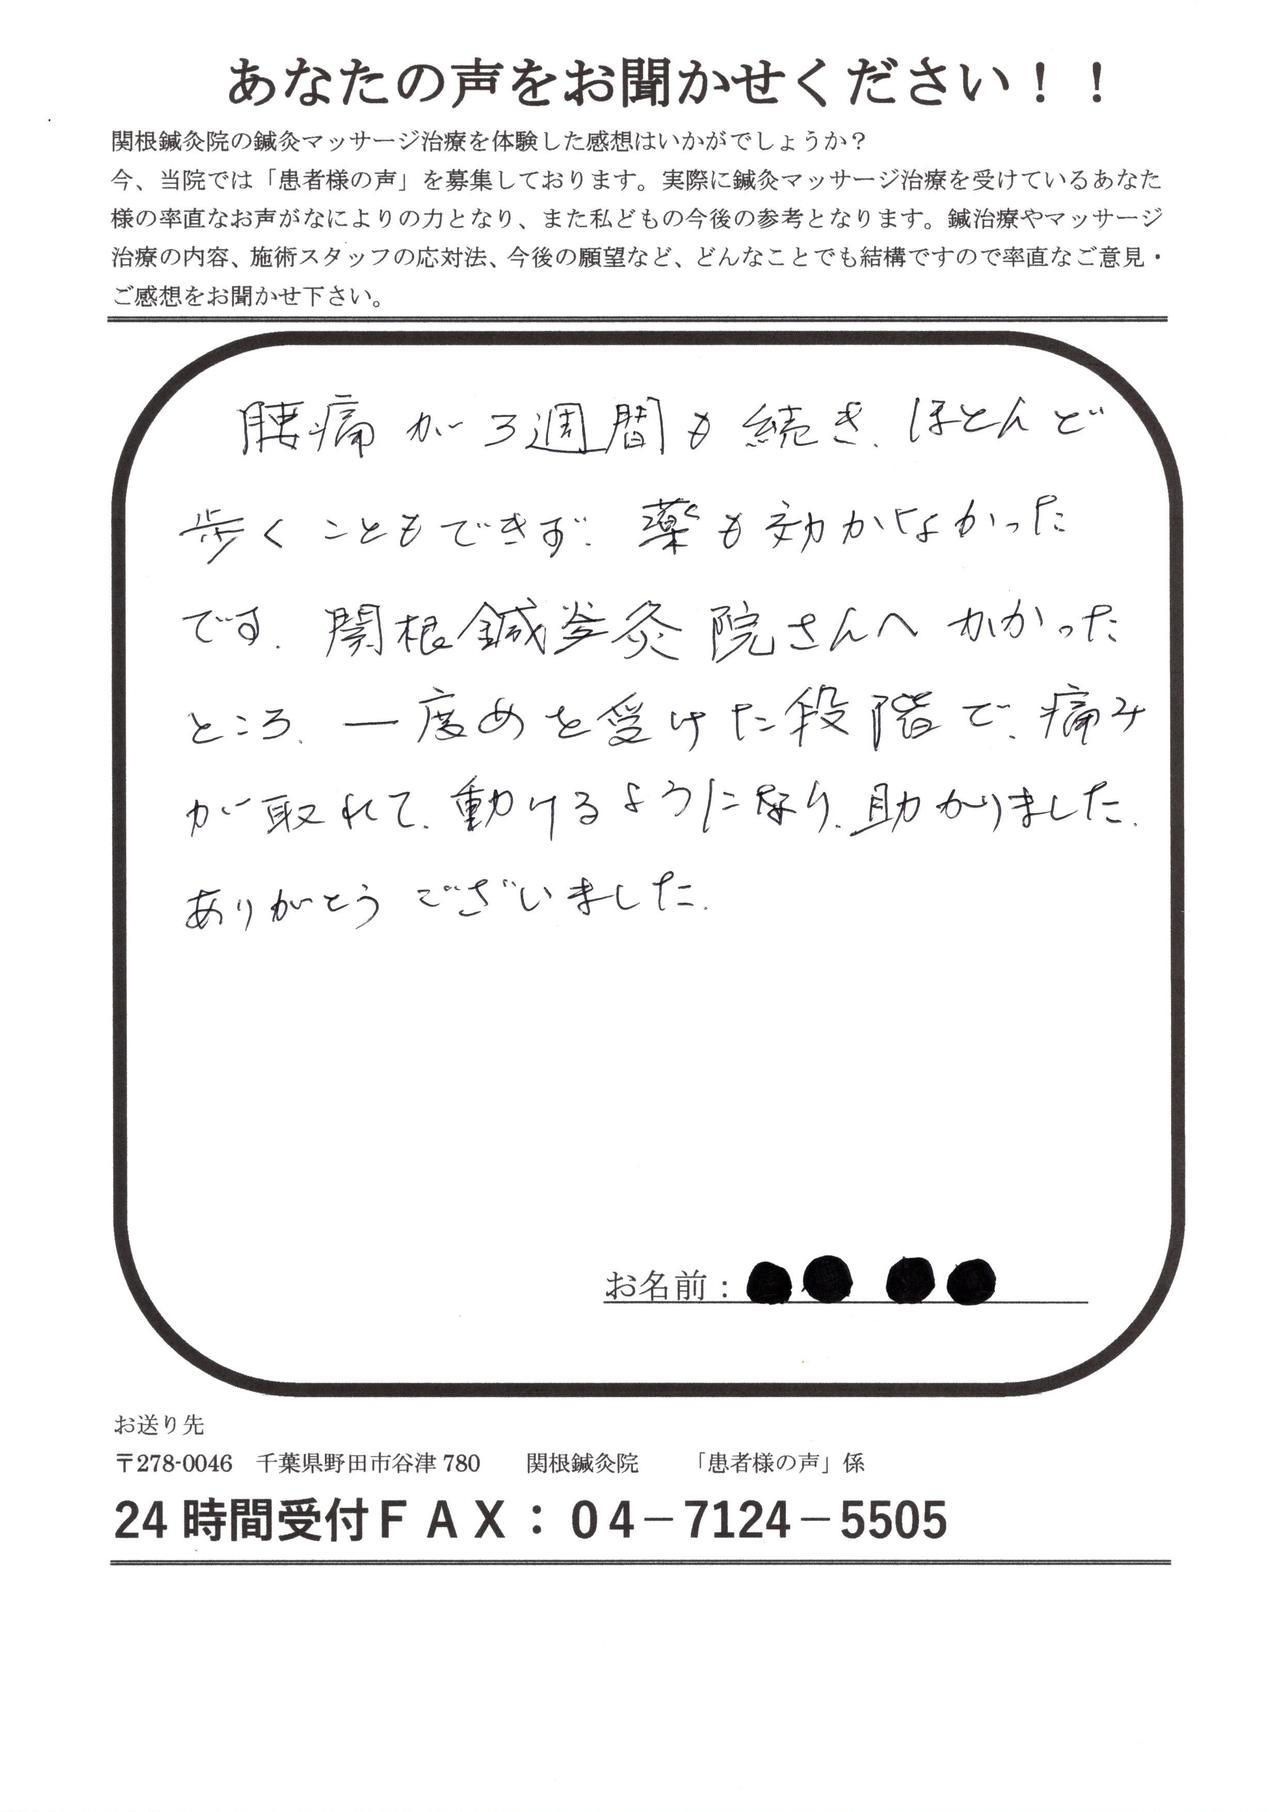 あなたの声をお聞かせください！！
関根鍼灸院の鍼灸マッサージ治療を体験した感想はいかがでしょうか？
今、当院では「患者様の声」を募集しております。実際に鍼灸マッサージ治療を受けているあなた
様の率直なお声がなによりの力となり、また私どもの今後の参考となります。鍼治療やマッサージ
治療の内容、施術スタッフの応対法、今後の願望など、どんなことでも結構ですので率直なご意見・
ご感想をお聞かせ下さい。
腰痛が3週間も続き、ほとんど
歩くこともできず、薬も効かなかった
です。関根鍼灸院さんへかかった
ところ、一度めを受けた段階で、痛み
が取れて、動けるようになり、助かりました。
ありがとうございました。
お名前：
お送り先
〒278-0046 千葉県野田市谷津 780 関根鍼灸院 「患者様の声」係
24 時間受付ＦＡＸ：０４－7124－5505